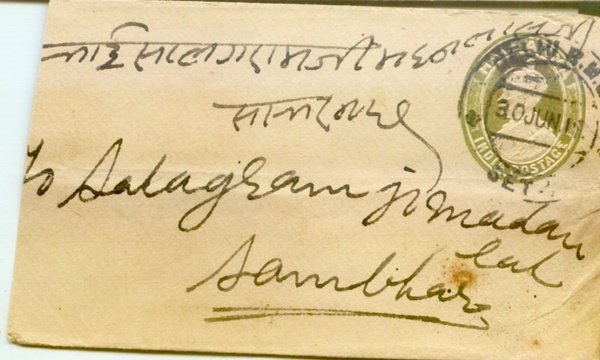 भाई सालगरामजी मदनलालजी
सांभर
To Salagram ji madan
lal
Sambhar
DELHI R.M.S.
30 JUN 1
SET
INDIA POSTAGE